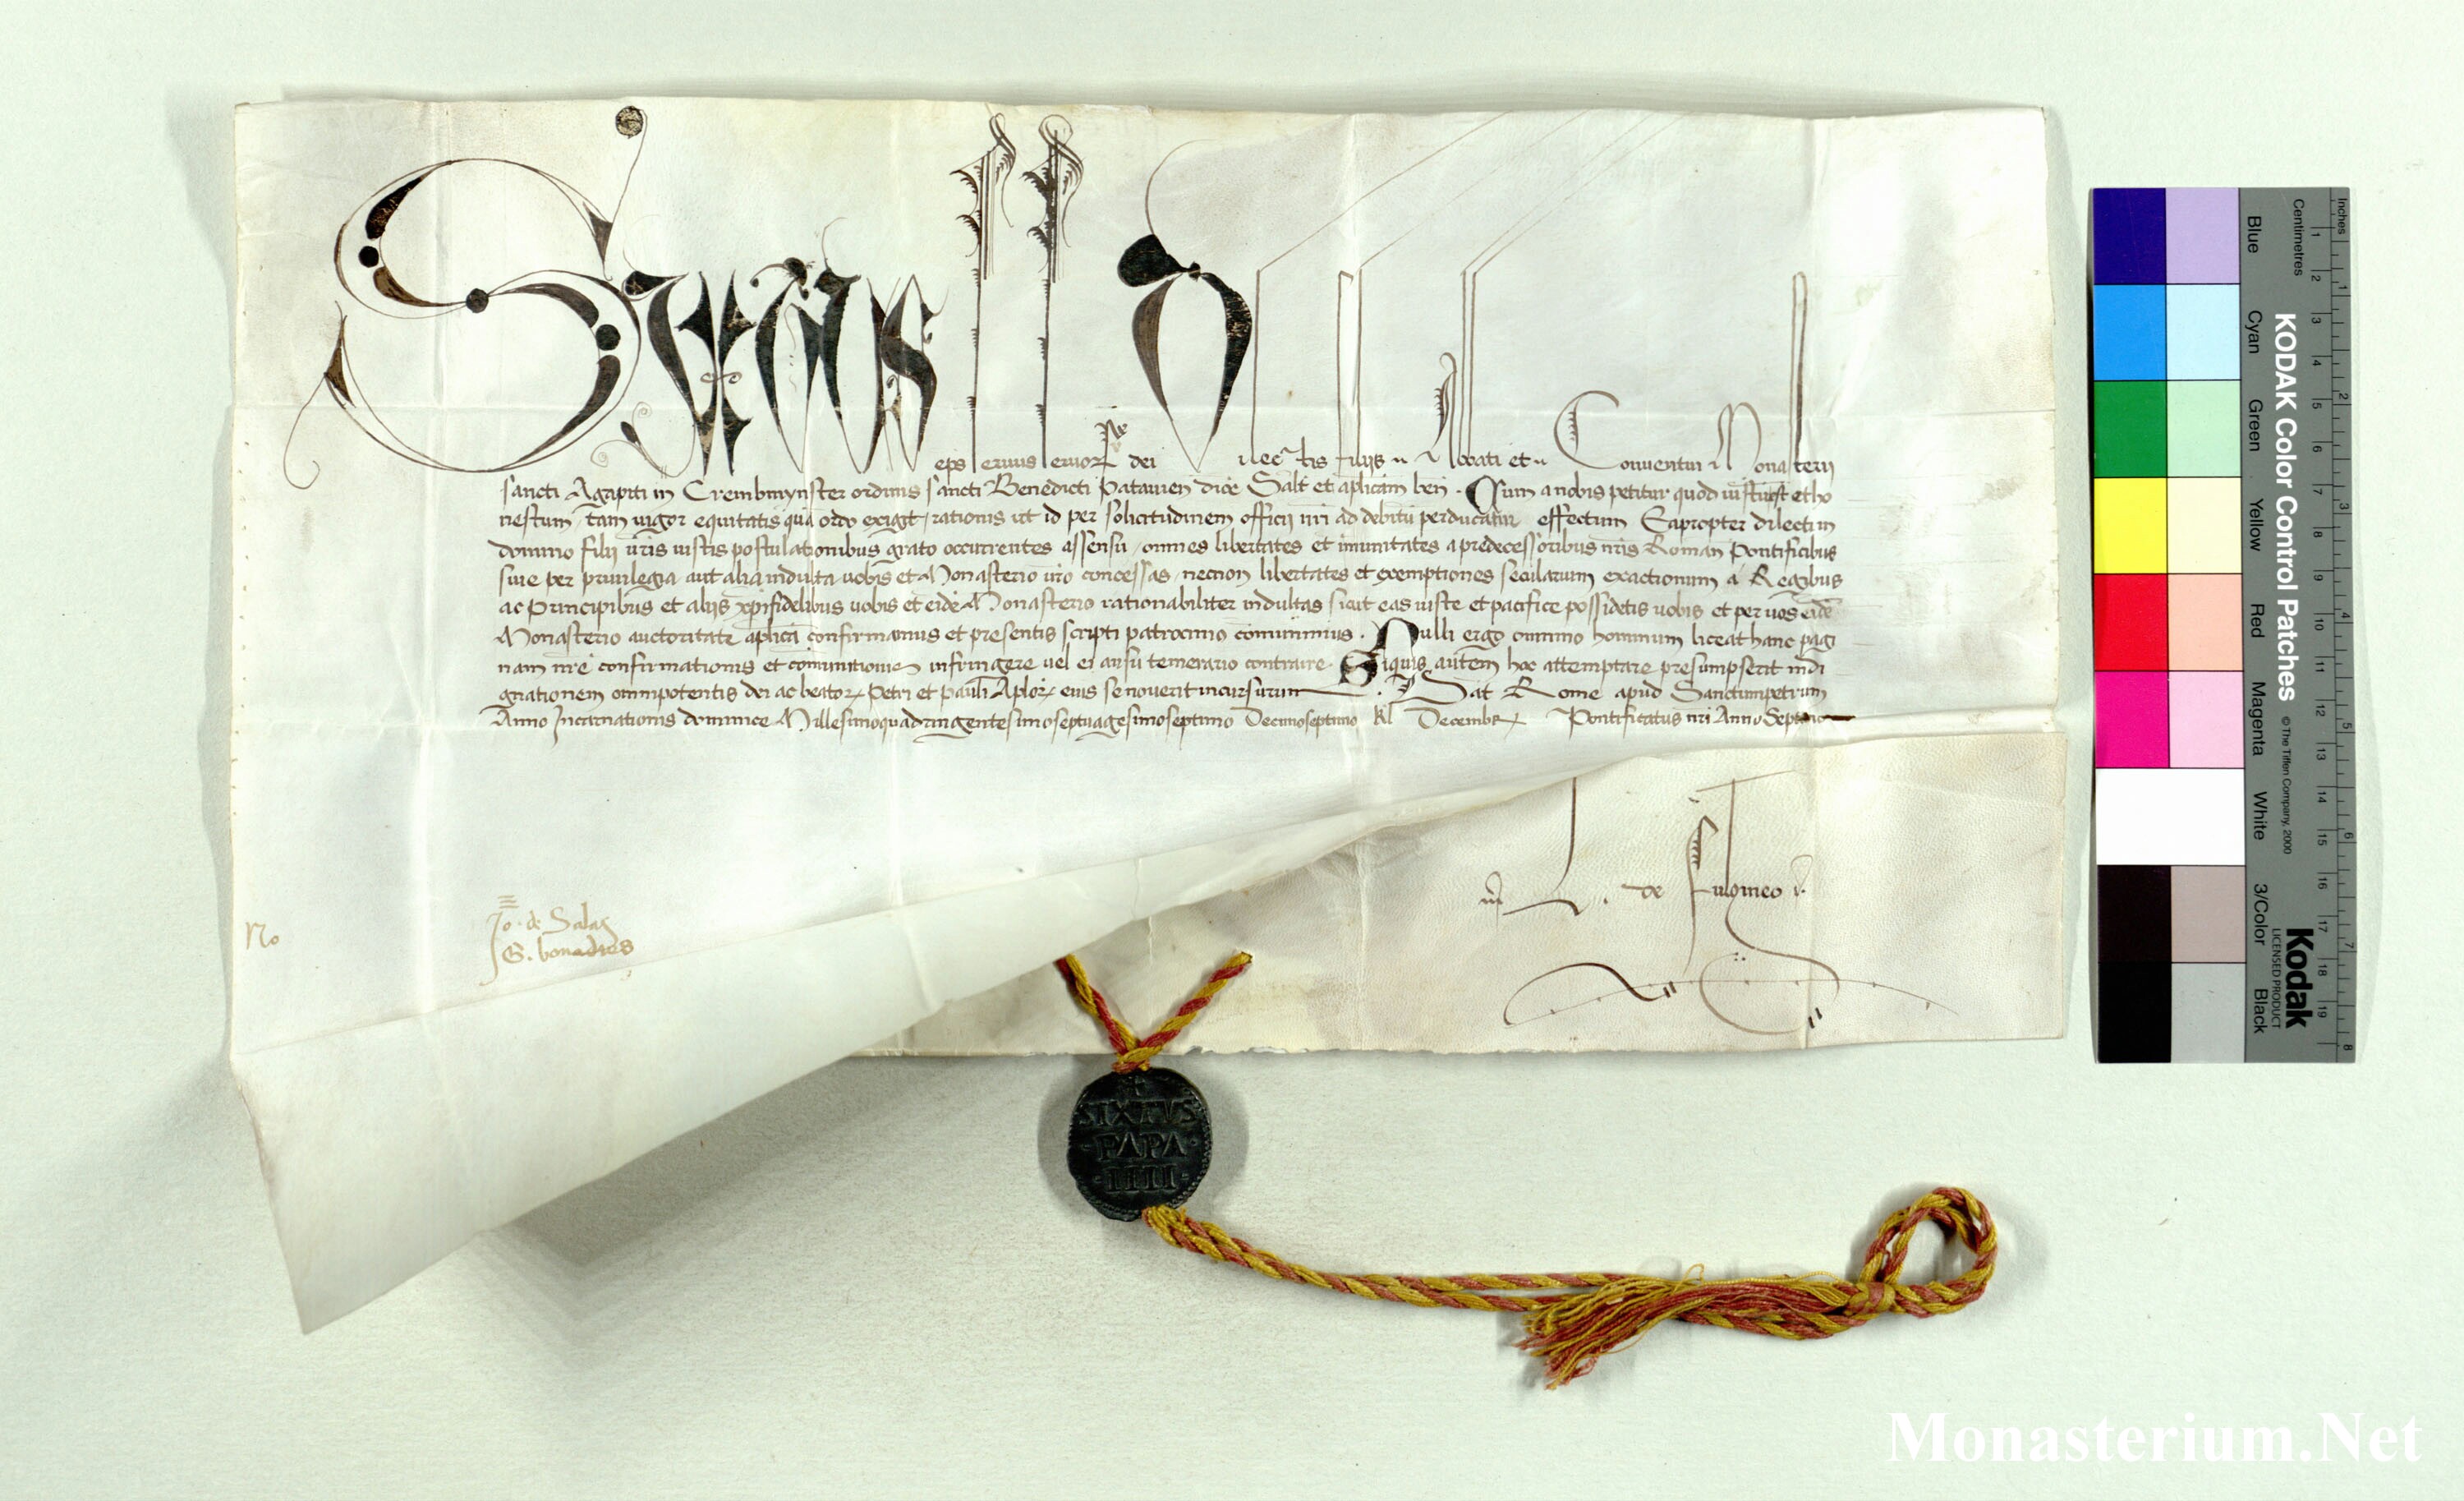 Sixtus eps servus servor dei Dilectis filiis Abbati et Conventui Monasterii
sancti Agapiti in Crembmynster ordinis sancti Benedicti Patavien dioc Salt et aplicam ben. Cum a nobis petitur quod iustu est et ho
nestum tam vigor equitatis qua ordo exigit rationis ut id per solicitudinem officii nri ad debitu perducatur effectum Eapropter dilecti in
domino filii vris iustis postulationibus grato occurrentes assensu omnes libertates et imunitates a predecessoribus nris Roman Pontificibus
sive per privilegia aut alia indulta vobis et Monasterio vro concessas necnon libertates et exemptiones secularium exactionum a Regibus
ac Principibus et aliis xpifidelibus vobis et eide Monasterio rationabiliter indultas sicut eas iuste et pacifice possidetis vobis et per vos eide
Monasterio auctoritate aplica confirmamus et presentis scripti patrocinio comunimus. Nulli ergo omnino hominum liceat hanc pagi
nam nre confirmationis et comunitionis infringere vel ei ausu temerario contraire. Siquis autem hoc attemptare presumpserit indi
gnationem omnipotentis dei ac beator Petri et Pauli Aplor eius se noverit incursurum. Dat Rome apud Sanctumpetrum
Anno Incarnationis dominice Millesimoquadringentesimoseptuagesimoseptimo Decimoseptimo kl Decembr Pontificatus nri Anno Septimo
No
Jo. de Salas
G. bonadies
L. de Fulgineo
SIXTVS
PAPA
IIII
Inches
Centimetres
KODAK Color Control Patches
© The Tiffen Company, 2000
Kodak
LICENSED PRODUCT
Blue
Cyan
Green
Yellow
Red
Magenta
White
3/Color
Black
1
2
3
4
5
6
7
8
9
10
11
12
13
14
15
16
17
18
19
1
2
3
4
5
6
7
8
Monasterium.Net